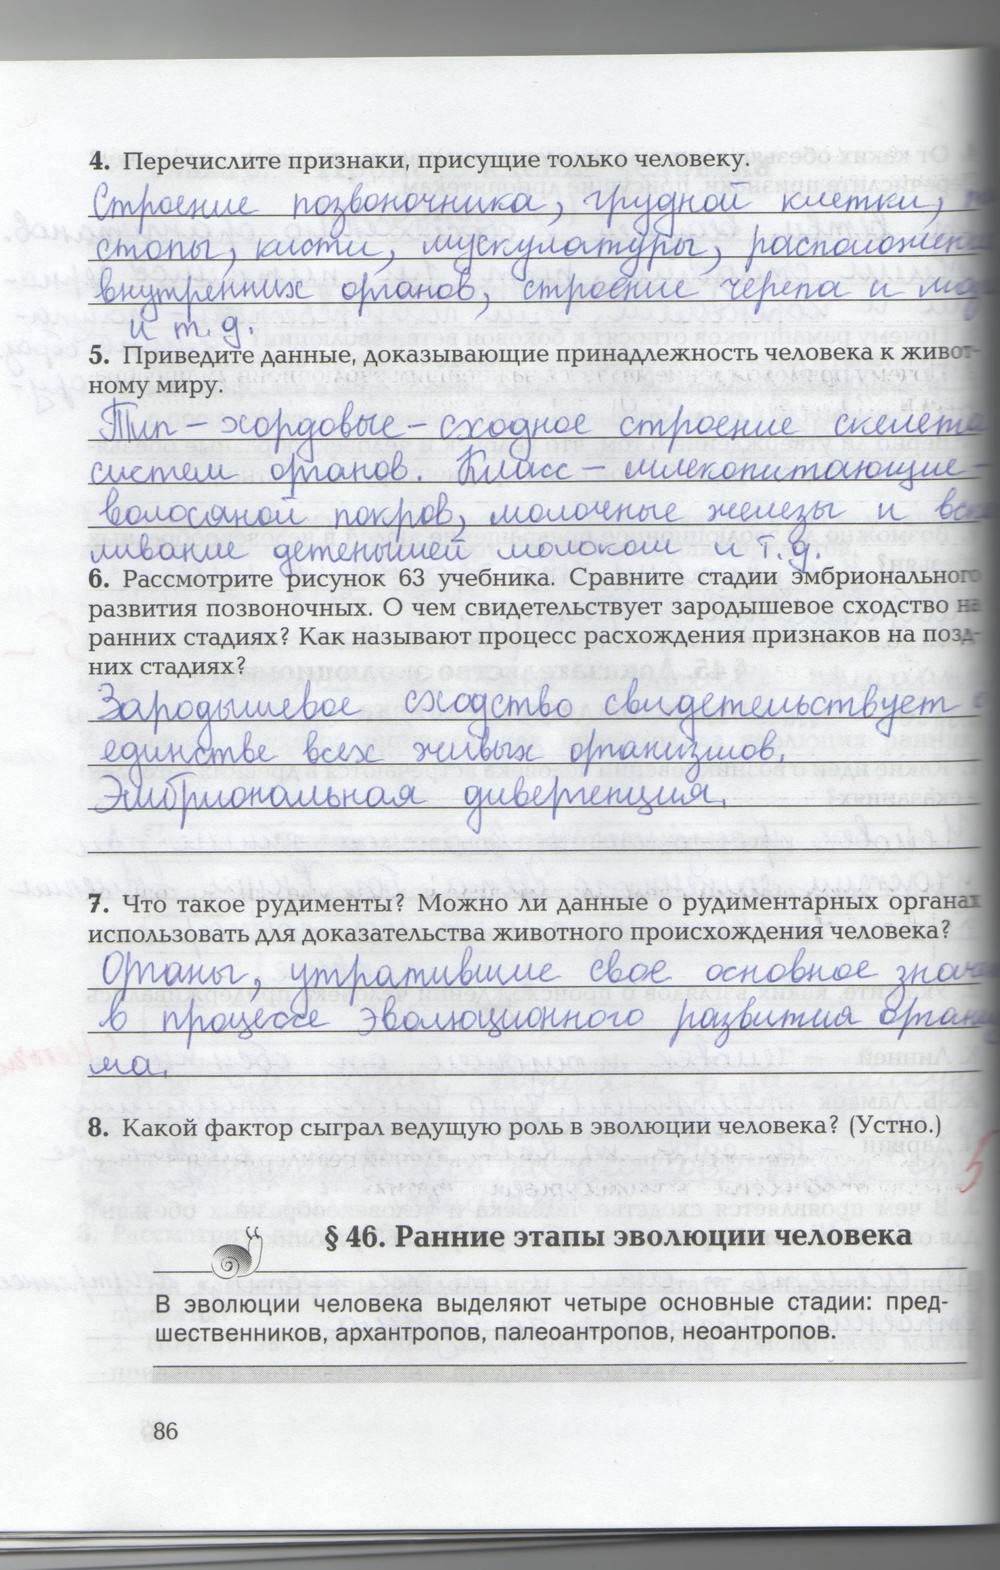 4. Перечислите признаки, присущие только человеку.
Строение позвоночника, грудной клетки,
стопы, кисти, мускулатуры, расположение
внутренних органов, строение черепа и
и т.д.
5. Приведите данные, доказывающие принадлежность человека к живот-
ному миру.
Тип – хордовые – сходное строение скелета
систем органов. Класс – млекопитающие –
волосяной покров, молочные железы и
ливание детенышей молоком и т.д.
6. Рассмотрите рисунок 63 учебника. Сравните стадии эмбрионального
развития позвоночных. О чем свидетельствует зародышевое сходство на
ранних стадиях? Как называют процесс расхождения признаков на позд-
них стадиях?
Зародышевое сходство свидетельствует о
единстве всех живых организмов.
Эмбриональная дивергенция.
7. Что такое рудименты? Можно ли данные о рудиментарных органах
использовать для доказательства животного происхождения человека?
Органы, утратившие свое основное
в процессе эволюционного развития организ
ма.
8. Какой фактор сыграл ведущую роль в эволюции человека? (Устно.)
5
§ 46. Ранние этапы эволюции человека
В эволюции человека выделяют четыре основные стадии: пред-
шественников, архантропов, палеоантропов, неоантропов.
86